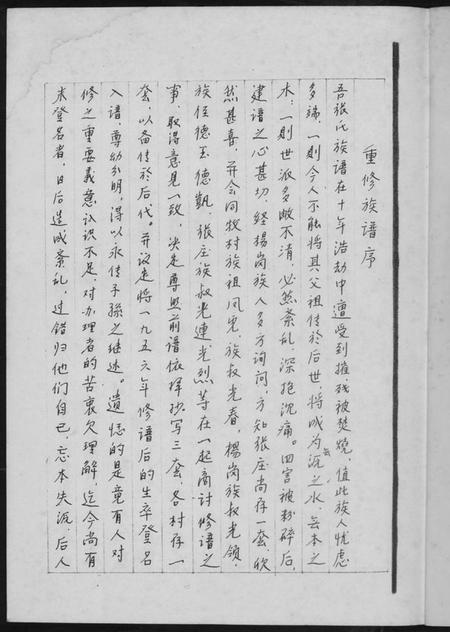 重修族譜序
吾張氏族譜在十年浩劫中遭受到摧残被焚燒，值此族人忧虑
多端，一則今人不能将其父祖传於后世，将成为沅之水，无本之
木；一則世派多湮不清，必然紊乱深抱沉痛。四害被粉碎后，
建譜之心甚切，经楊岗族人多方询问，方知张庄尚存一套，欣
然甚喜，并会同牧村族祖凤宪，族叔光春，楊岗族叔光领，
族侄德玉德凱，张庄族叔光連光烈等在一起商讨修譜之
事，取得意见一致，决定尊照前譜依样抄写三套，各村存一
套，以备传於后代。并议定将一九五六年修譜后的生卒登名
入譜，尊幼分明，得以永传子孫之继述。遺憾的是竟有人对
修之重要義意认识不足，对办理者的苦衷欠理解，迄今尚有
未登名者，日后造成紊乱，过错归他们自已，忘本失沅，后人